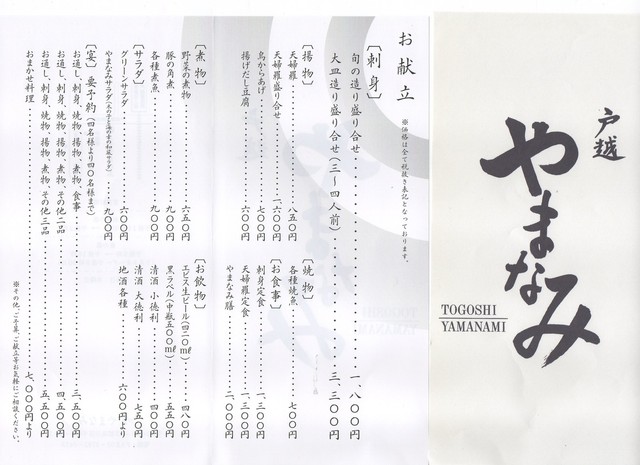 戸越
やまなみ
TOGOSHI
YAMANAMI
お献立
※価格は全て税抜き表記となっております。
〔刺身〕
旬の造り盛り合せ……一、八〇〇円
大皿造り盛り合せ(三~四人前)……三、三〇〇円
〔揚物〕
天婦羅……八五〇円
天婦羅盛り合せ……一、六〇〇円
鳥からあげ……七〇〇円
揚げだし豆腐……六〇〇円
〔焼物〕
各種焼魚……七〇〇円
〔お食事〕
刺身定食……一、三〇〇円
天婦羅定食……一、三〇〇円
やまなみ膳……二、〇〇〇円
〔煮物〕
野菜の煮物……六五〇円
豚の角煮……九〇〇円
各種煮魚……九〇〇円
〔サラダ〕
グリーンサラダ……六〇〇円
やまなみサラダ……九〇〇円
〔お飲物〕
エビス生ビール(四二〇㎖)……四八〇円
黒ラベル(中瓶五〇〇㎖)……五五〇円
清酒 小徳利……四〇〇円
清酒 大徳利……七五〇円
地酒各種……六〇〇円より
〔宴〕要予約(四名様より四〇名様まで)
お通し、刺身、焼物、揚物、煮物、食事……三、五〇〇円
お通し、刺身、焼物、揚物、煮物、その他二品……四、五〇〇円
お通し、刺身、焼物、揚物、煮物、その他三品……五、五〇〇円
おまかせ料理……七、〇〇〇円より
※その他、ご予算、ご献立等お気軽にご相談ください。